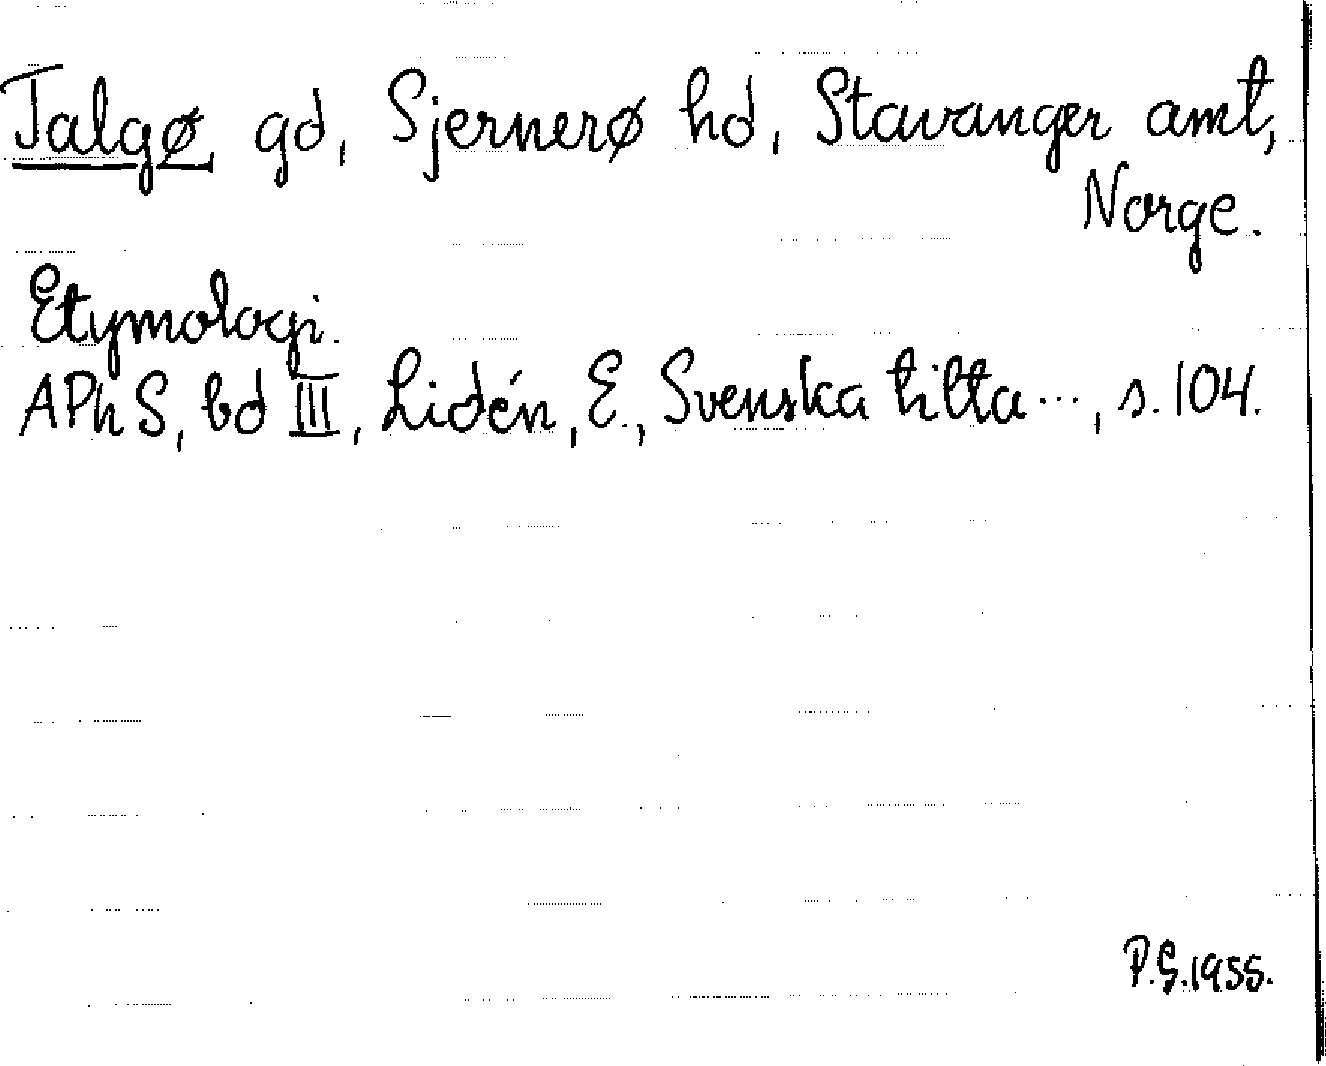 Talgø gd, Sjernerø hd, Stavanger amt,
Norge.
Etymologi.
APhS, bd III, Lidén, E., Svenska tilta..., s. 104.
P.G. 1955.